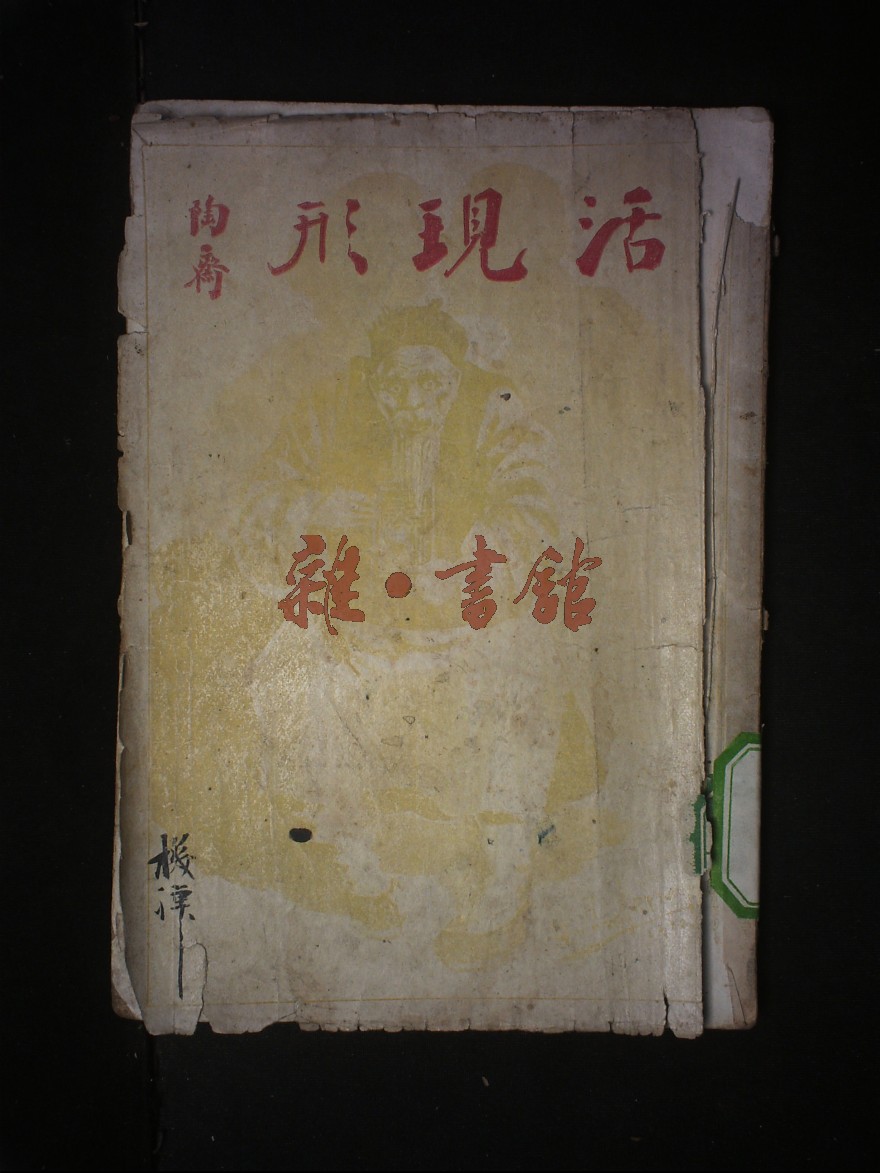 活現形
陶齋
雜·書館